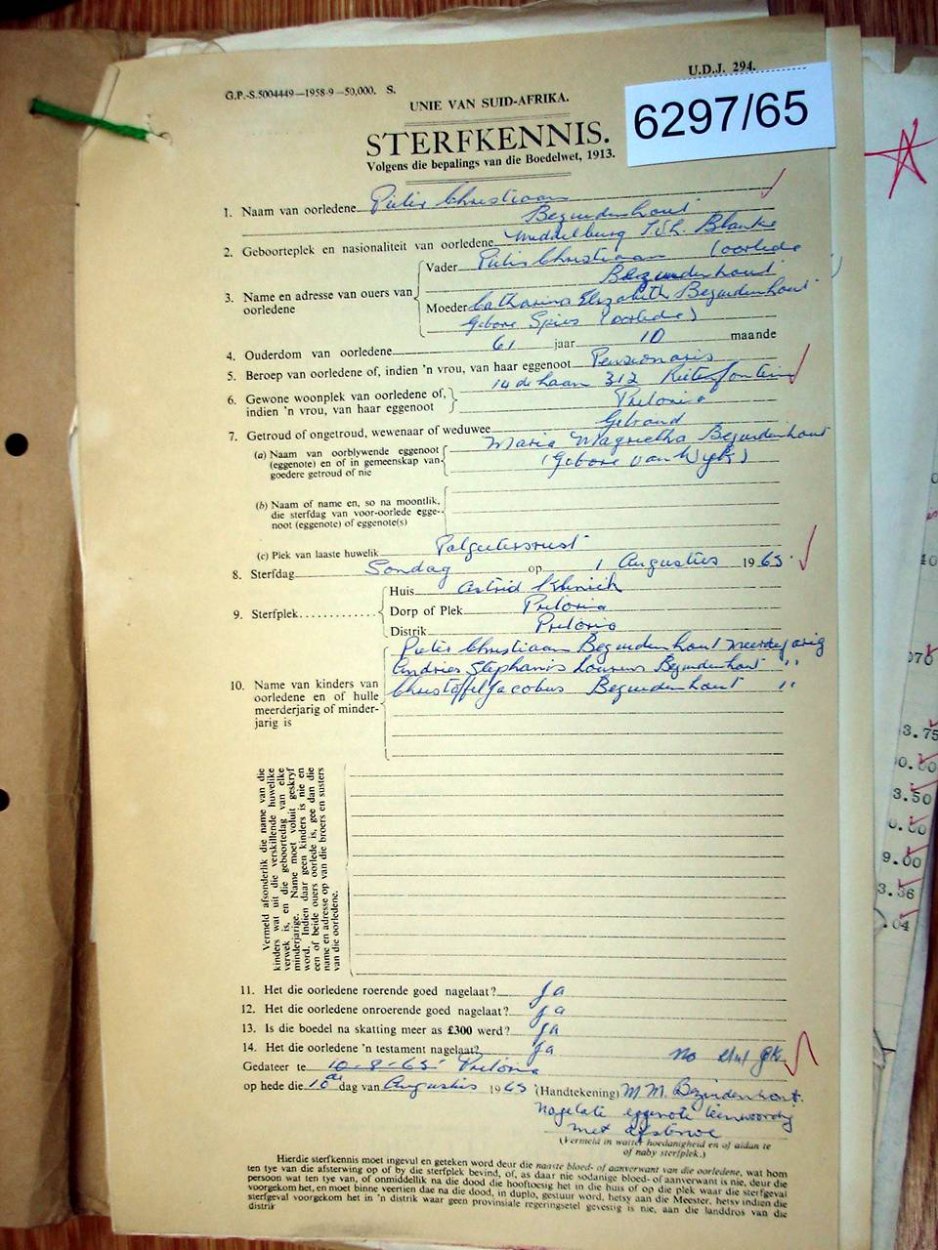 U.D.J. 294.
G.P.-S.5004449—1958-9—50,000. S.
6297/65
UNIE VAN SUID-AFRIKA.
STERFKENNIS.
Volgens die bepalings van die Boedelwet, 1913.
1. Naam van oorledene Pieter Christiaan
Bezuidenhout
2. Geboorteplek en nasionaliteit van oorledene Middelburg Tvl. Blanke
3. Name en adresse van ouers van oorledene
Vader Pieter Christiaan (oorlede
Bezuidenhout
Moeder Catharina Elizabeth Bezuidenhout
Gebore Spies (oorlede)
4. Ouderdom van oorledene 61 jaar 10 maande
5. Beroep van oorledene of, indien 'n vrou, van haar eggenoot Pensionaris
6. Gewone woonplek van oorledene of, indien 'n vrou, van haar eggenoot
14 de Laan 312 Rietfontein
Pretoria
7. Getroud of ongetroud, wewenaar of weduwee Getroud
(a) Naam van oorblywende eggenoot (eggenote) en of in gemeenskap van goedere getroud of nie
Maria Magrietha Bezuidenhout
(Gebore van Wyk)
(b) Naam of name en, so na moontlik, die sterfdag van voor-oorlede eggenoot (eggenote) of eggenote(s)
(c) Plek van laaste huwelik Potgietersrust
8. Sterfdag Sondag op 1 Augustus 1965
9. Sterfplek
Huis Astrid Kliniek
Dorp of Plek Pretoria
Distrik Pretoria
10. Name van kinders van oorledene en of hulle meerderjarig of minderjarig is
Pieter Christiaan Bezuidenhout meerderjarig
Andries Stephanis Lourens Bezuidenhout ,,
Christoffel Jacobus Bezuidenhout ,,
Vermeld afsonderlik die name van die
kinders wat uit die verskillende huwelike
verwek is, en die geboortedag van elke
minderjarige. Name moet voluit geskryf
word. Indien daar geen kinders is nie en
een of beide ouers oorlede is, gee dan die
name en adresse op van die broers en susters
van die oorledene.
11. Het die oorledene roerende goed nagelaat? Ja
12. Het die oorledene onroerende goed nagelaat? Ja
13. Is die boedel na skatting meer as £300 werd? Ja
14. Het die oorledene 'n testament nagelaat? Ja
Gedateer te 10-8-65 Pretoria
op hede die 10de dag van Augustus 1965 (Handtekening) M M. Bezuidenhout.
Nagelate eggenote teenwoordig
met afsterwe
(Vermeld in watter hoedanigheid en of aldan te
of naby sterfplek.)
Hierdie sterfkennis moet ingevul en geteken word deur die naaste bloed- of aanverwant van die oorledene, wat hom
ten tye van die afsterwing op of by die sterfplek bevind, of, as daar nie sodanige bloed- of aanverwant is nie, deur die
persoon wat ten tye van, of onmiddellik na die dood die hooftoesig het in die huis of op die plek waar die sterfgeval
voorgekom het, en moet binne veertien dae na die dood, in duplo, gestuur word, hetsy aan die Meester, hetsy indien die
sterfgeval voorgekom het in 'n distrik waar geen provinsiale regeringsetel gevestig is nie, aan die landdros van die
distrik
3.75
3.50
9.00
3.36
.04